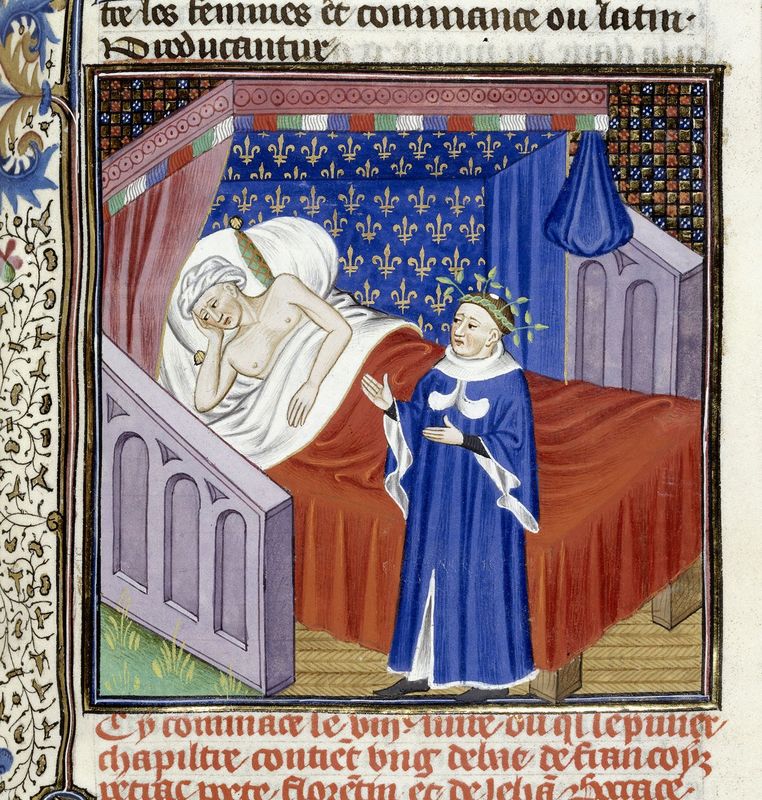 tre les femmes et commance ou latin.
Producantur
Cy commāce le viijᵉ liure ou ql le p̄mier
chapiltre contiēt vng debat de francoys
petrac poete florētin et de Jehā Bocace.